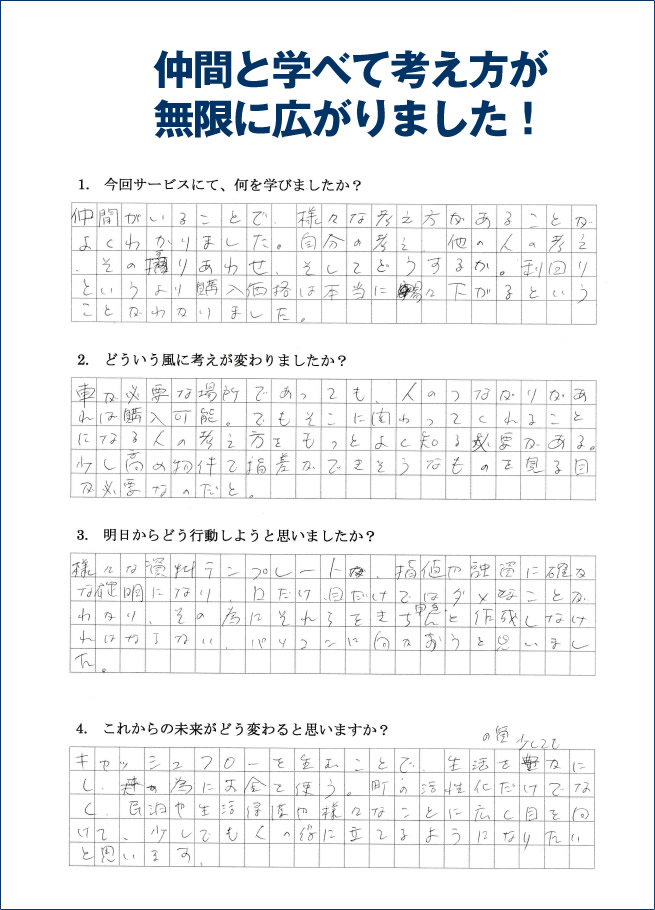 仲間と学べて考え方が
無限に広がりました！
1. 今回サービスにて、何を学びましたか？
仲間がいることで、様々な考え方があることが
よくわかりました。自分の考え、他の人の考え
、その摺りあわせ、そしてどうするか。利回り
というより購入価格は本当に 々下がるという
ことがわかりました。
2. どういう風に考えが変わりましたか？
車が必要な場所であっても、人のつながりがあ
れば購入可能。でもそこに関わってくれること
になる人の考え方をもっとよく知る必要がある。
少し高め物件で指差ができそうなものを見る目
が必要なのだと。
3. 明日からどう行動しようと思いましたか？
様々な資料テンプレートが、指値や融資に確か
な証明になり、口だけ、目だけではダメなことが
わかり、その為にそれらをきちんと作成しなけ
ればならない、パソコンに向かおうと思いまし
た。
4. これからの未来がどう変わると思いますか？
の質 少しでも
キャッシュフローを生むことで、生活を豊かに
し、 為にお金を使う。町の活性化だけでな
く、民泊や生活保護や様々なことに広く目を向
けて、少しでも人の役に立てるようになりたい
と思います。